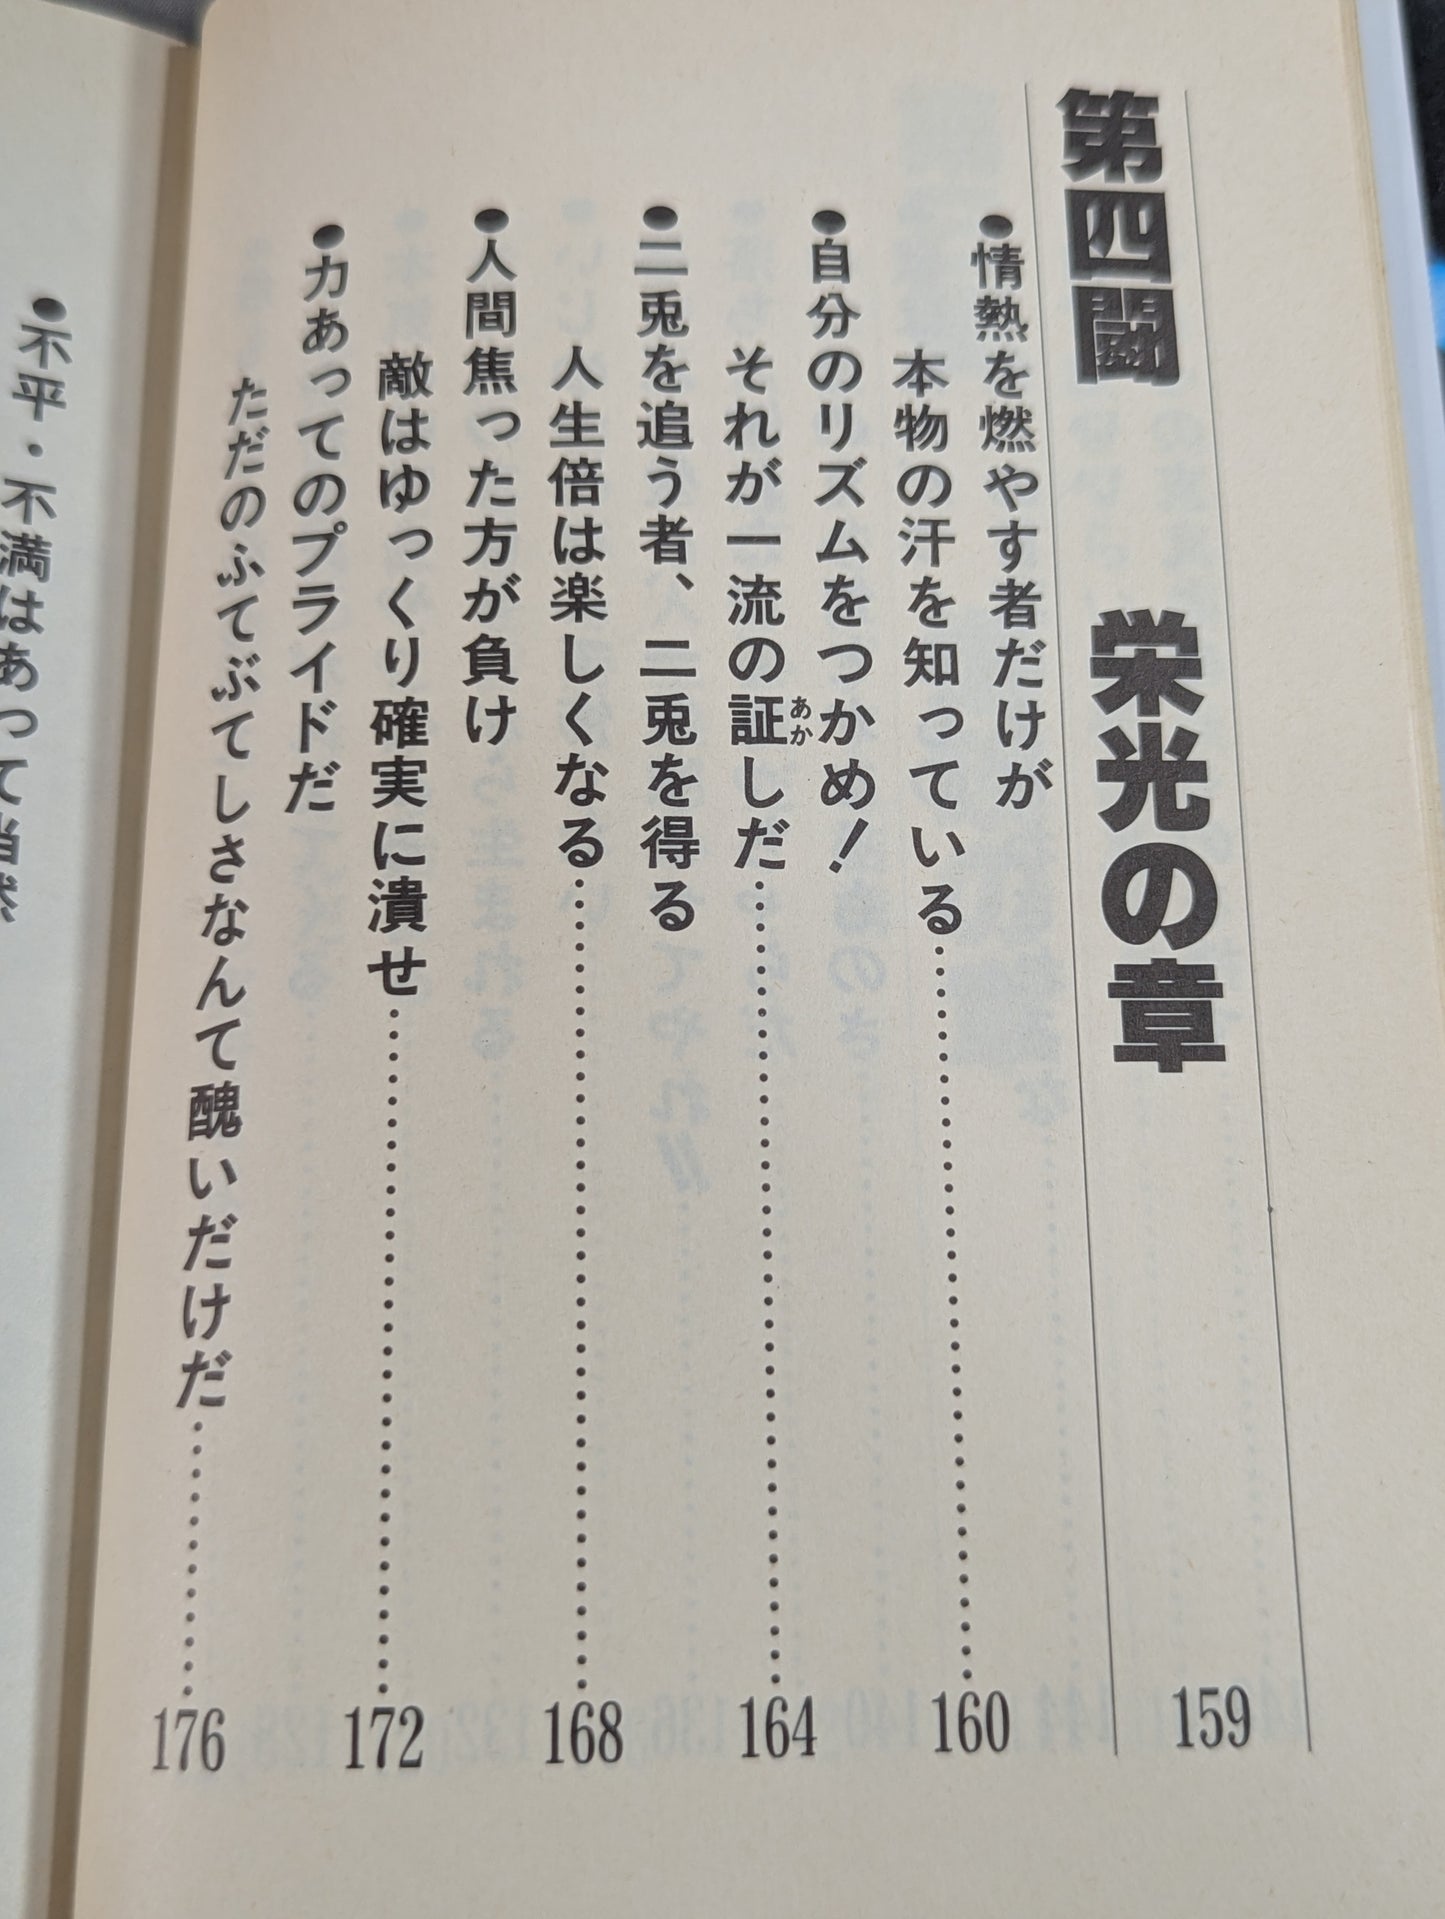 第四闘 栄光の章 159
●情熱を燃やす者だけが
本物の汗を知っている……………………160
●自分のリズムをつかめ!
それが一流の証しだ……………………164
あか
●二兎を追う者、二兎を得る
人生倍は楽しくなる……………………168
●人間焦った方が負け
敵はゆっくり確実に潰せ……………………172
●力あってのプライドだ
ただのふてぶてしさなんて醜いだけだ…………176
●不平・不満はあって当然